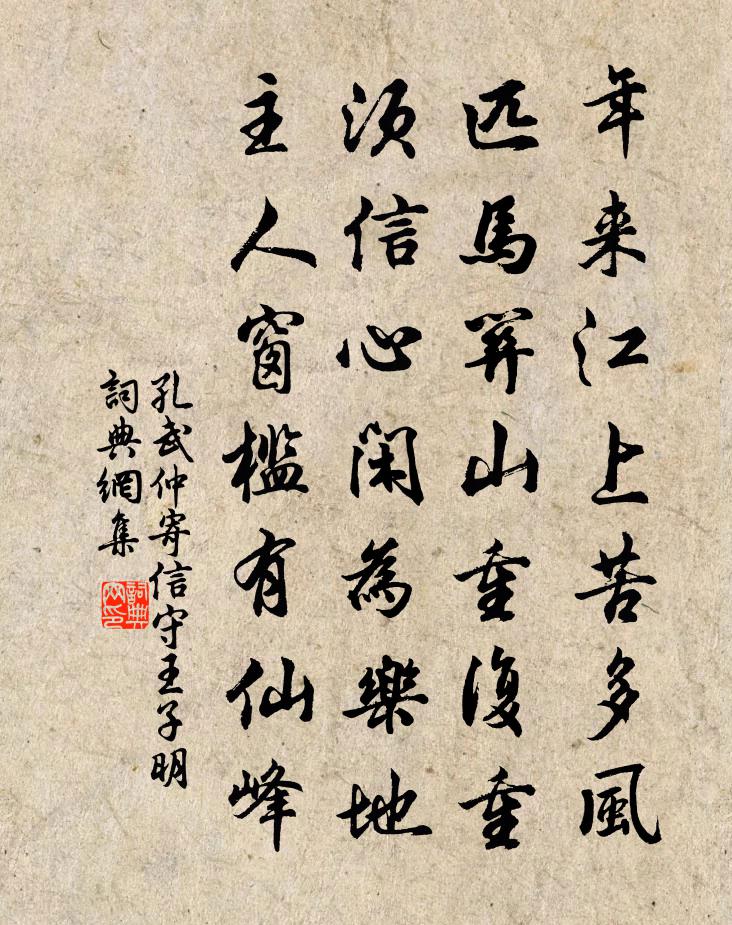 年来江上苦多風
匹馬關山重復重
須信心閑為樂地
主人窗檻有仙峰
孔武仲寄信守王子明
詞典網集
詞典網印